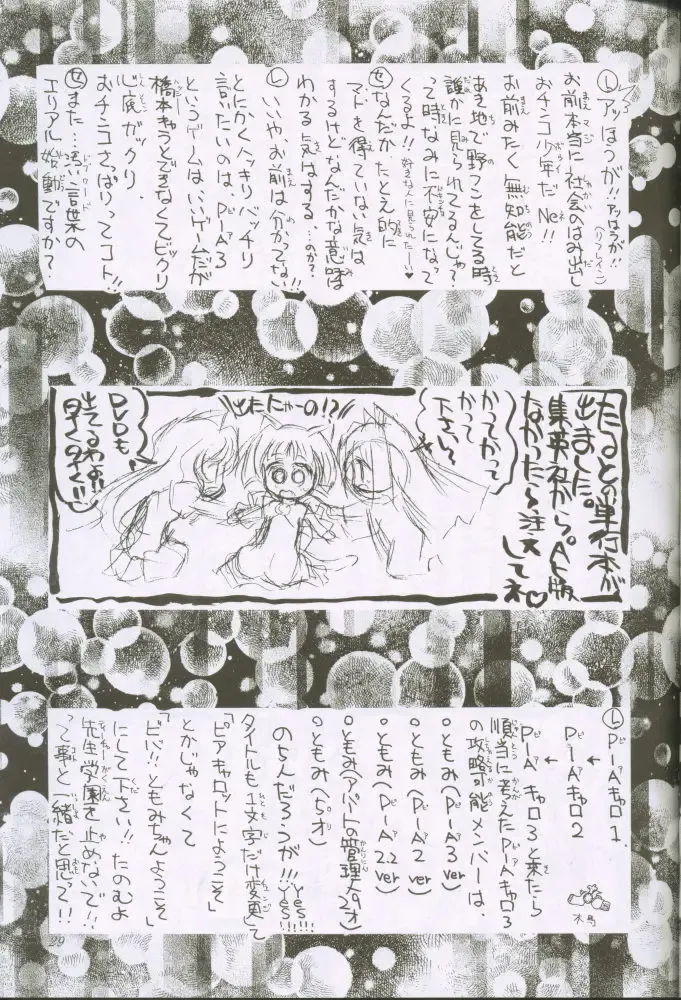 Ⓛアッはうが!!アッはうが!!(リフレイン)
お前本当に社会のはみ出し
おチンコ少年だNe!!
お前みたく無知能だと
あき地で野つこをしてる時
誰かに見られてるんじゃ?
って時なみに不安になって
くるよ!!好きな人に見られたー♥
Ⓢなんだか、たとえ的に
マトを得ていない気は
するけどなんだかな意味は
わかる気はする…のか?。
Ⓛいいや、お前は分かってない!
とにかくハッキリバッチリ
言いたいのは、Pia3
というゲームはいいゲームだが
橋本キャラとできなくてビックリ
心底ガックリ、
おチンコさっぱりってコト!!
Ⓢまた…汚い言葉の
エリアル始動ですか?
たるとの単行本が
出ました。
集英社から。A5版
なかったら注文
してネ♡
かってかって
かって
下さい〜
出たにゃーの!?
DVDも
出てるわよ!!
早く早く!!
ⓁPiAキャロ1.
↓
PiAキャロ2
↓
PiAキャロ3と来たら
順当に考えたPiAキャロ3
の攻略可能メンバーは、
○ともみ(PiA3ver)
○ともみ(PiA2ver)
○ともみ(PiA2.2ver)
○ともみ(アパートの管理人29才)
○ともみ(5才)
のもんだろうが!!!yes!!!yes!!!
タイトルも1文字だけ変更して
「ピアキャロットにようこそ」
とかじゃなくて
「ビバ!!ともみちゃんようこそ」
にして下さい!!たのむよ
先生学園を止めないで!!
って事と一緒だと思って!!
29